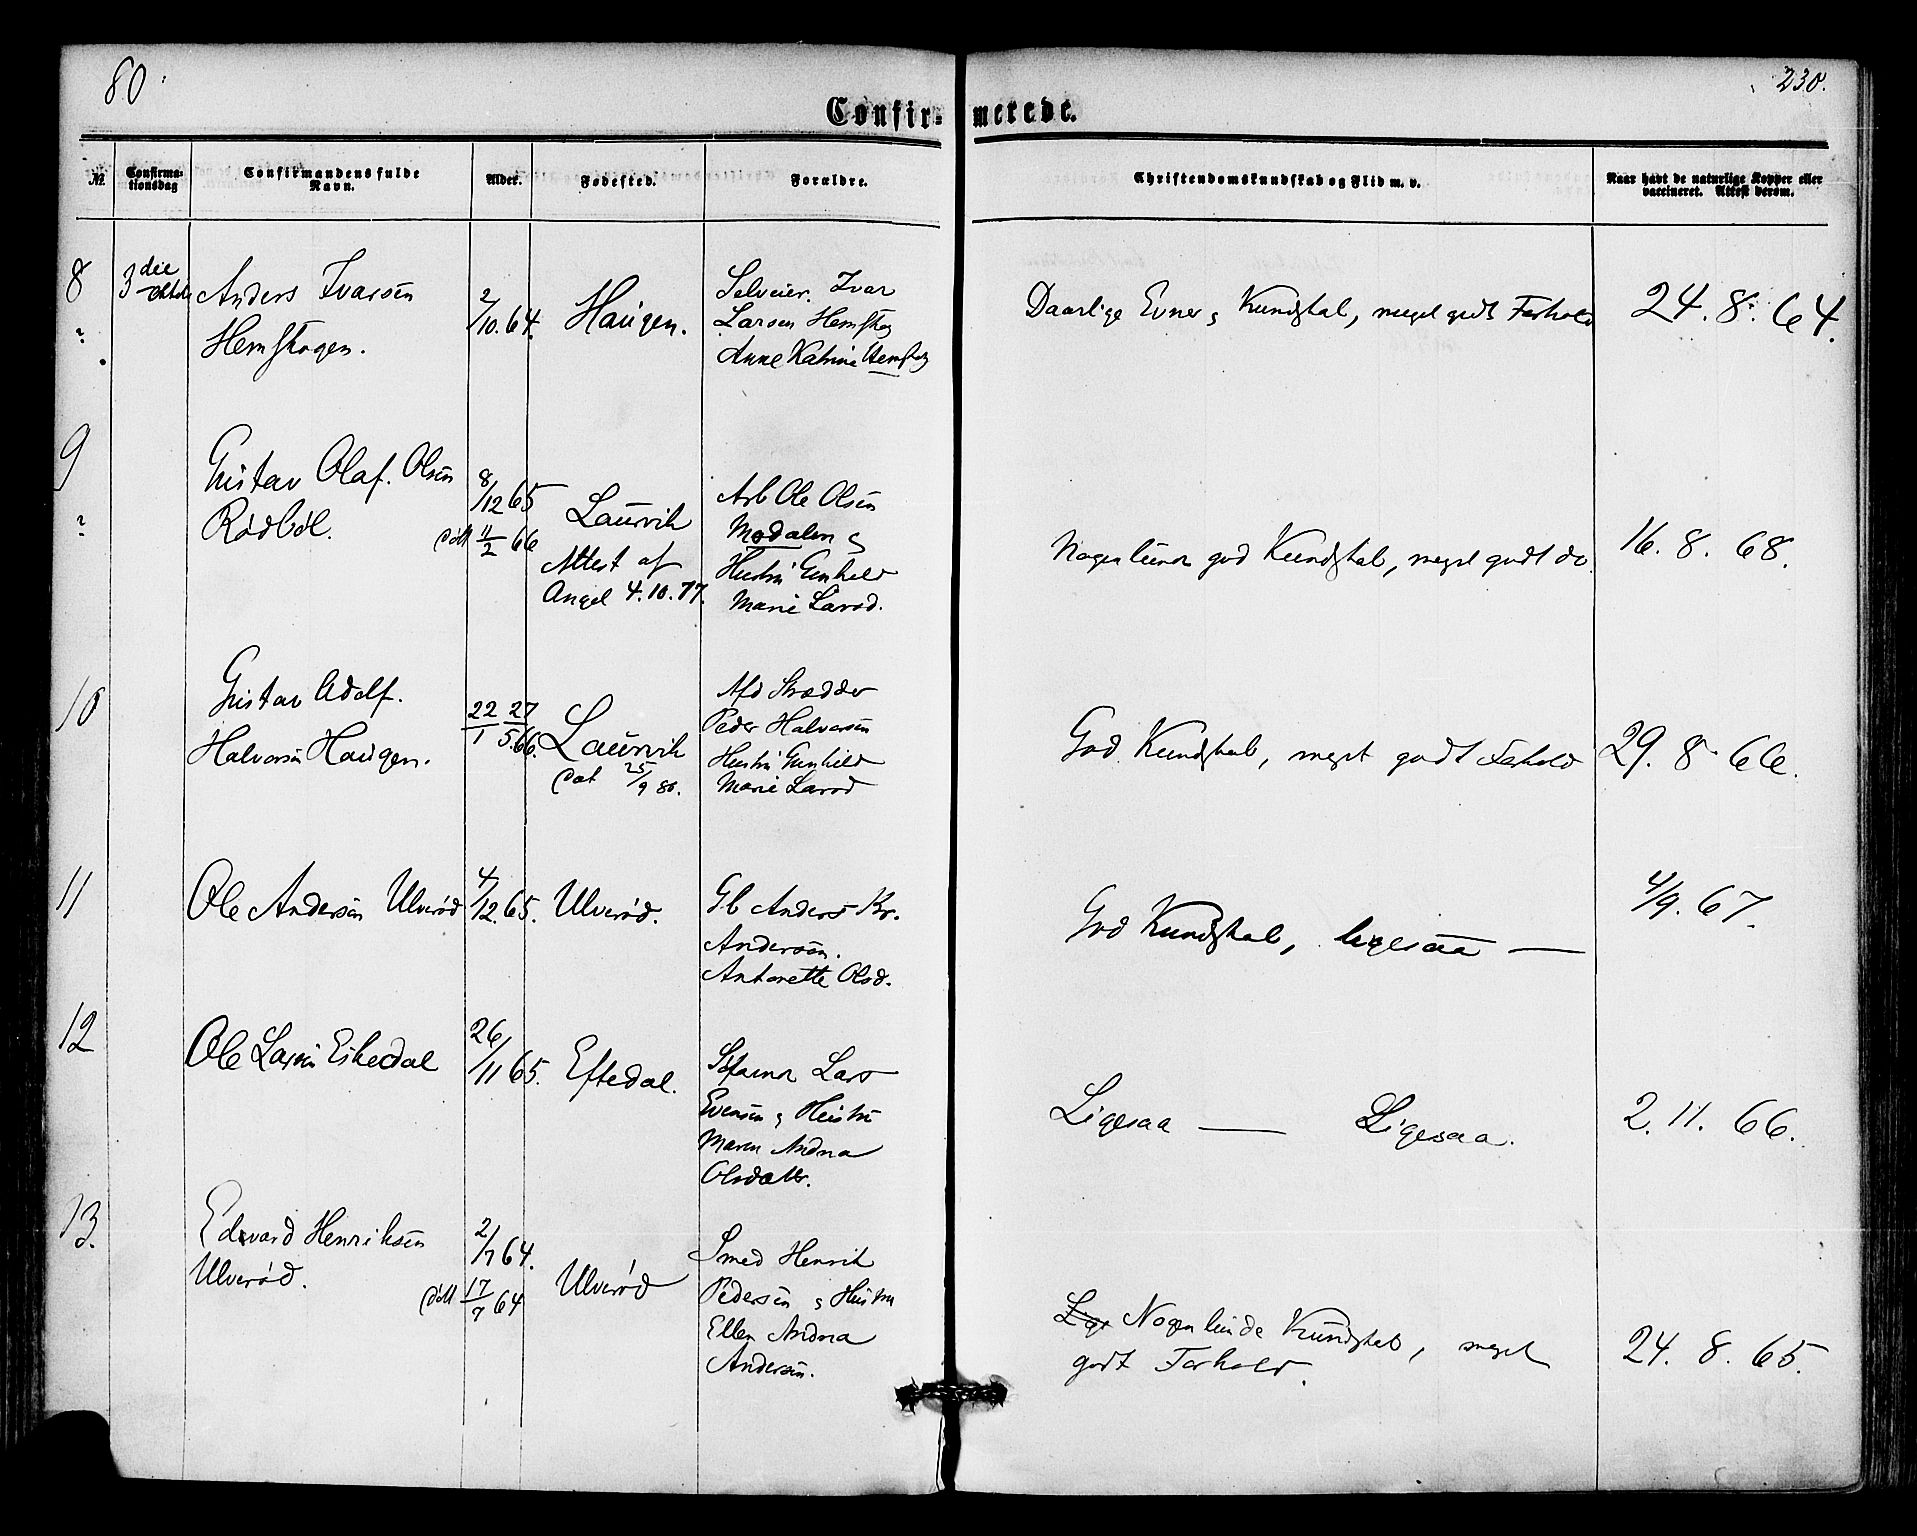 80
230.
Confir-merede.
№
Confirma-
tionsdag
Confirmandens fulde
Navn.
Alder.
Fødested.
Forældre.
Christendomskundskab og Flid m. v.
Naar havt de naturlige Kopper eller
vaccineret. Attest derom.
8
3 die
Anders Ivarsen
Hemskogen.
2/10.64.
Haugen.
Selveier. Ivar
Larsen Hemskog
Anne Katrine Hemskog
Daarlige Evner og Kundskab, meget godt Forhold
24.8.64.
9
Gustav Olaf. Olsen
Rødbøl.
8/12 65
døbt 11/2 66
Laurvik
Attest af
Angel 4.10.77.
Arb Ole Olsen
Modalen og
Hustru Gunhild
Marie Larsd.
Nogenlunde god Kundskab, meget godt do
16. 8. 68.
10
Gustav Adolf.
Halvorsen Haugen.
22/1 27/5.66.
Laurvik
Dat 25/9 80.
Afd Skrædder
Peder Halvorsen
Hustru Gunhild
Marie Larsd
God Kundskab, meget godt Forhold
29. 8 66.
11
Ole Andersen Ulverød
4/12.65.
Ulverød.
Gb Anders Kr.
Andersen.
Antonette Olsd.
God Kundskab, ligesaa —
4/9. 67.
12
Ole Larsen Eikedal
26/11 65.
Eftedal.
Lars
Evensen og Hustru
Maren Andrea
Olsdatter.
Ligesaa — Ligesaa.
2. 11. 66.
13.
Edvard Henriksen
Ulverød.
2/7 64.
døbt 17/7 64
Ulverød
Smed Henrik
Pedersen og Hustru
Ellen Andrea
Andersen.
Lige Nogenlunde Kundskab, meget
godt Forhold.
24. 8. 65.